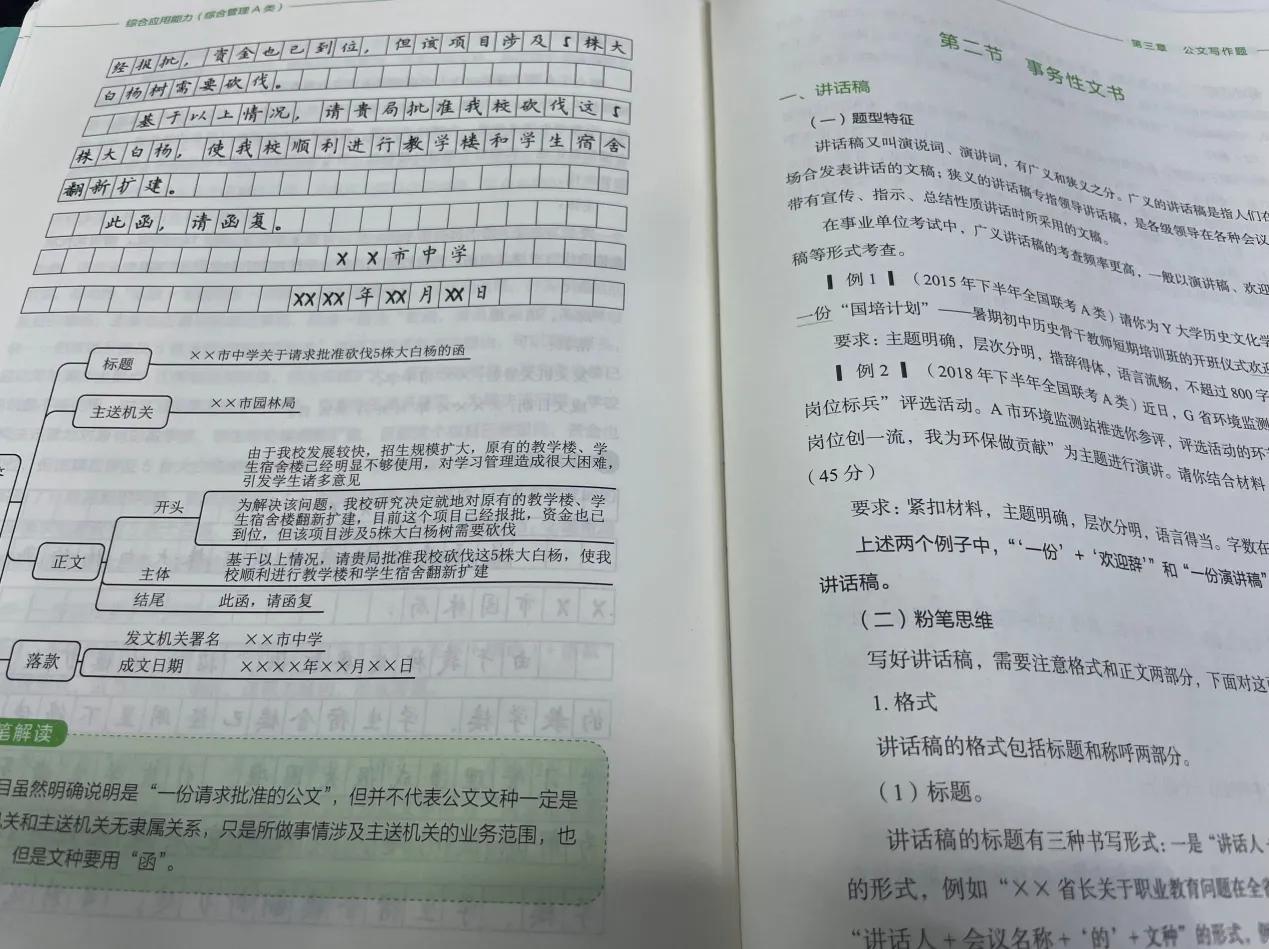 综合应用能力（综合管理A类）
经报批，资金也已到位，但该项目涉及5株大
白杨树需要砍伐。
基于以上情况，请贵局批准我校砍伐这5
株大白杨，使我校顺利进行教学楼和学生宿舍
翻新扩建。
此函，请函复。
××市中学
××××年××月××日
标题
××市中学关于请求批准砍伐5株大白杨的函
主送机关
××市园林局
正文
开头
由于我校发展较快，招生规模扩大，原有的教学楼、学
生宿舍楼已经明显不够使用，对学习管理造成很大困难，
引发学生诸多意见
为解决该问题，我校研究决定就地对原有的教学楼、学
生宿舍楼翻新扩建，目前这个项目已经报批，资金也已
到位，但该项目涉及5株大白杨树需要砍伐
主体
基于以上情况，请贵局批准我校砍伐这5株大白杨，使我
校顺利进行教学楼和学生宿舍翻新扩建
结尾
此函，请函复
落款
发文机关署名
××市中学
成文日期
××××年××月××日
笔解读
目虽然明确说明是“一份请求批准的公文”，但并不代表公文文种一定是
机关和主送机关无隶属关系，只是所做事情涉及主送机关的业务范围，也
但是文种要用“函”。
第三章 公文写作题
第二节 事务性文书
一、讲话稿
（一）题型特征
讲话稿又叫演说词、演讲词，有广义和狭义之分。广义的讲话稿是指人们在
场合发表讲话的文稿；狭义的讲话稿专指领导讲话稿，是各级领导在各种会议
带有宣传、指示、总结性质讲话时所采用的文稿。
在事业单位考试中，广义讲话稿的考查频率更高，一般以演讲稿、欢迎
稿等形式考查。
▌例1▐（2015年下半年全国联考A类）请你为Y大学历史文化学
一份“国培计划”——暑期初中历史骨干教师短期培训班的开班仪式欢迎
要求：主题明确，层次分明，措辞得体，语言流畅，不超过800字
▌例2▐（2018年下半年全国联考A类）近日，G省环境监测
岗位标兵”评选活动。A市环境监测站推选你参评，评选活动的环节
岗位创一流，我为环保做贡献”为主题进行演讲。请你结合材料
（45分）
要求：紧扣材料，主题明确，层次分明，语言得当。字数在
上述两个例子中，“‘一份’+‘欢迎辞’”和“一份演讲稿”
讲话稿。
（二）粉笔思维
写好讲话稿，需要注意格式和正文两部分，下面对这
1.格式
讲话稿的格式包括标题和称呼两部分。
（1）标题。
讲话稿的标题有三种书写形式：一是“讲话人+
的形式，例如“××省长关于职业教育问题在全省
“讲话人+会议名称+‘的’+文种”的形式，例